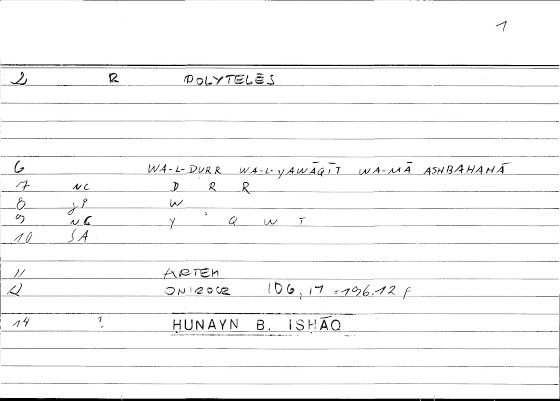 1
2 R POLYTELĒS
6 WA-L-DURR WA-L-YAWĀQĪT WA-MĀ ASHBAHAHĀ
7 NC D R R
8 JP W
9 NC Y ' Q W T
10 SA
11 ARTEM
12 ONIROCR 106, 17 = 196.12 f
14 ? ḤUNAYN B. ISḤĀQ